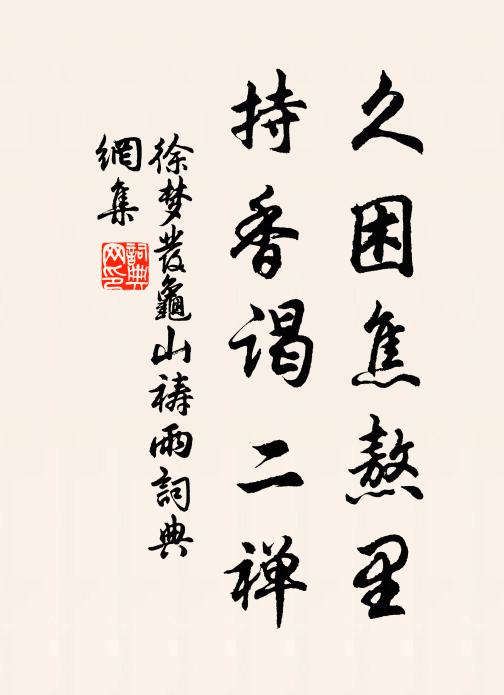 久困焦熬里
持香谒二禅
徐梦发龜山祷雨詞典
網集
詞典网印